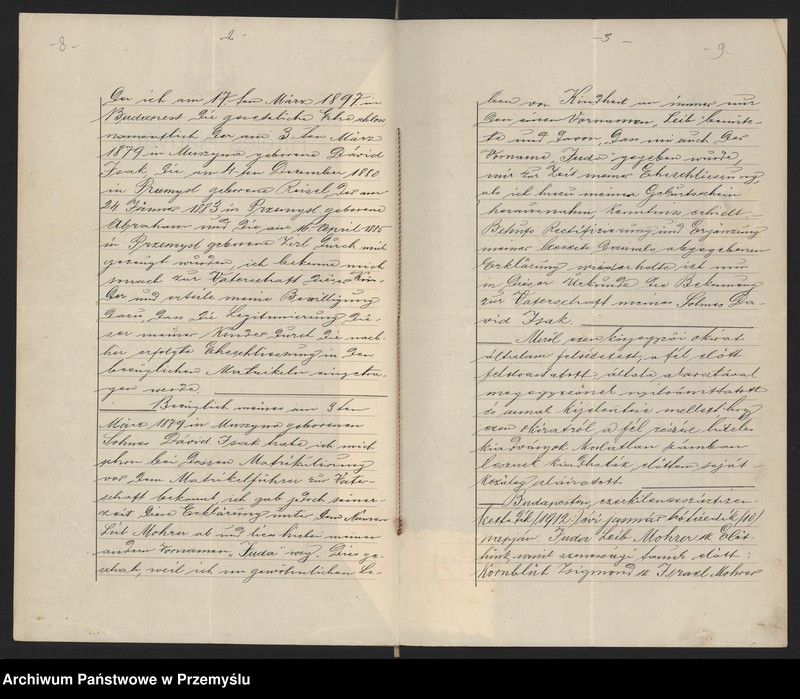 -8-
-2-
Da ich am 17-ten März 1897 in
Budapest die gesetzliche Ehe schloss
namentlich der am 3-ten März
1879 in Muszyna geborene Dávid
Isak, die am 4-ten Dezember 1880
in Przemysl geborene Reisel, der am
24 Jänner 1883 in Przemysl geborene
Abraham und die am 16. April 1885
in Przemysl geborene durch mich
gezeugt wurden, ich bekenne mich
somach zur Vaterschaft dieser Kin-
der und erteile meine Bewilligung
dazu dass die Legitimierung die-
ser meiner Kinder durch die nach-
her erfolgte Eheschliessung in den
bezüglichen Matrikeln eingetra-
gen werde.
Bezüglich meines am 3 ten
März 1879 in Muszyna geborenen
Sohnes Dávid Isak habe ich mich
schon bei dessen Matrikulierung
vor dem Matrikelführer zur Vater-
schaft bekannt, ich gab jedoch seiner-
zeit diese Erklärung unter dem Namen
Leib Mohrer ab und liess hiebei meinen
andern Vornamen „Juda" weg. Dies ge-
schah, weil ich im gewöhnlichen Le-
-3-
-9-
ben von Kindheit an immer nur
den einen Vornamen „Leib" benütz-
te und davon, dass mir auch der
Vorname „Juda" gegeben wurde,
mir zur Zeit meiner Eheschliessung,
als ich hiezu meinen Geburtschein
herausnahm, Kenntniss erhielt.
Behufs Rectifizierung und Ergänzung
meiner damals abgegebenen
Erklärung wiederhole ich nun
in dieser Urkunde die Bekennung
zur Vaterschaft meines Sohnes Da-
vid Isak.
Miről ezen közjegyzői okirat
általam felvétetett, a fél előtt
felolvastatott, általa akaratával
megegyezőnek nyilvánittatott
és annak kijelentése mellett hogy
ezen okiratról a fél részére hiteles
kiadványok korlátlan számban
lesznek kiadhatók előttem saját-
kezüleg aláiratott.
Budapesten, ezerkilencszáztizen-
kettedik (1912) évi január hó tizedik (10)
napján. Juda Leib Mohrer sk Elöt-
tünk, mint azonossági tanuk előtt:
Kornblüt Zsigmond sk Israel Mohrer
Archiwum Państwowe w Przemyślu